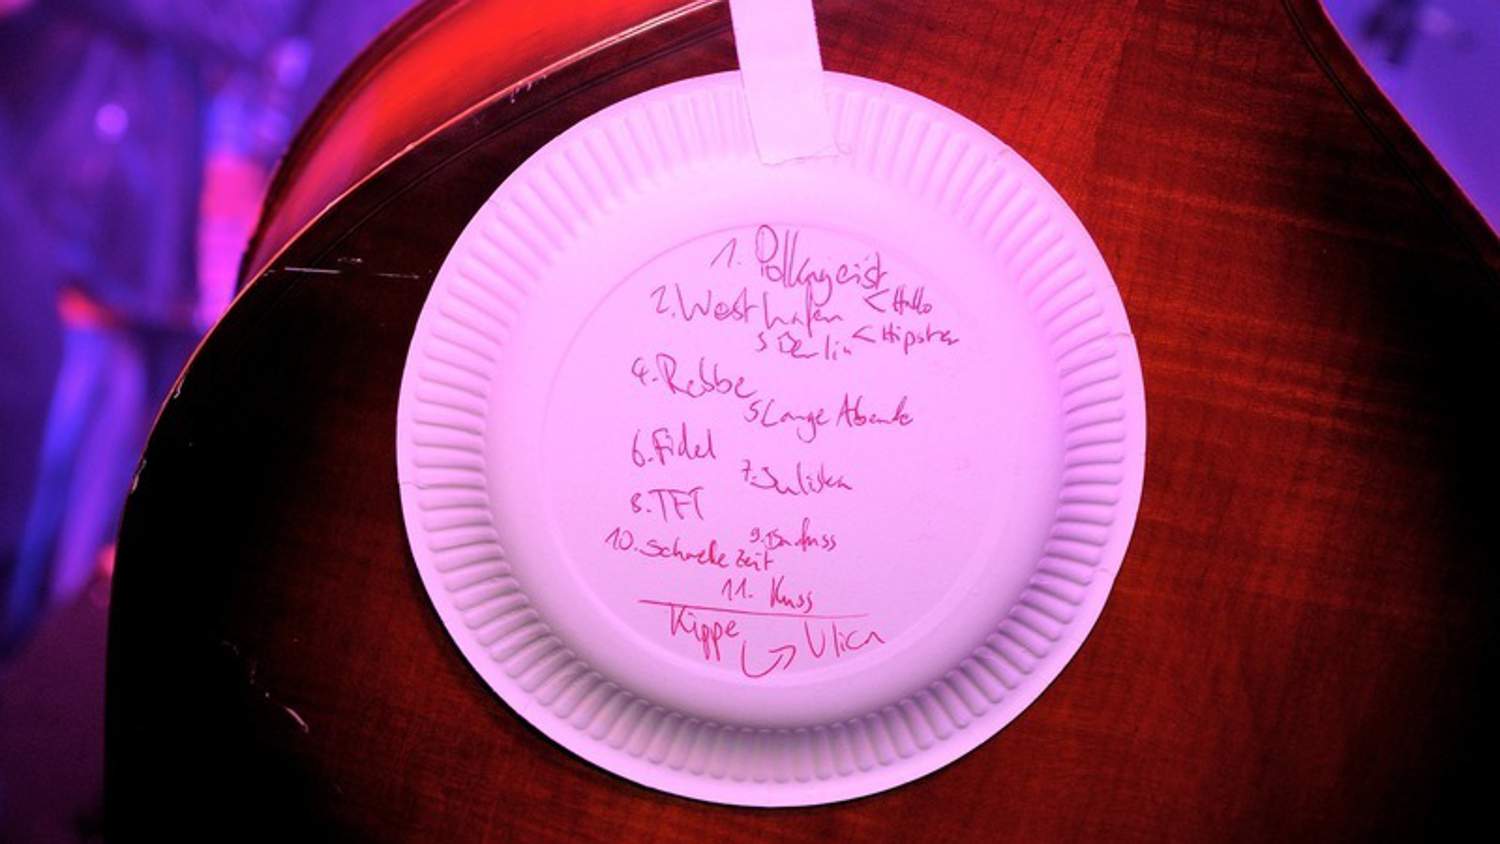 1. Polkageist
2. Westhafen < Hallo
3 Berlin < Hipster
4. Rebbe
5 Lange Abende
6. Fidel
7. Juliska
8. TFT
9.
10. Schnelle Zeit
11. Kuss
Kippe
Ulica